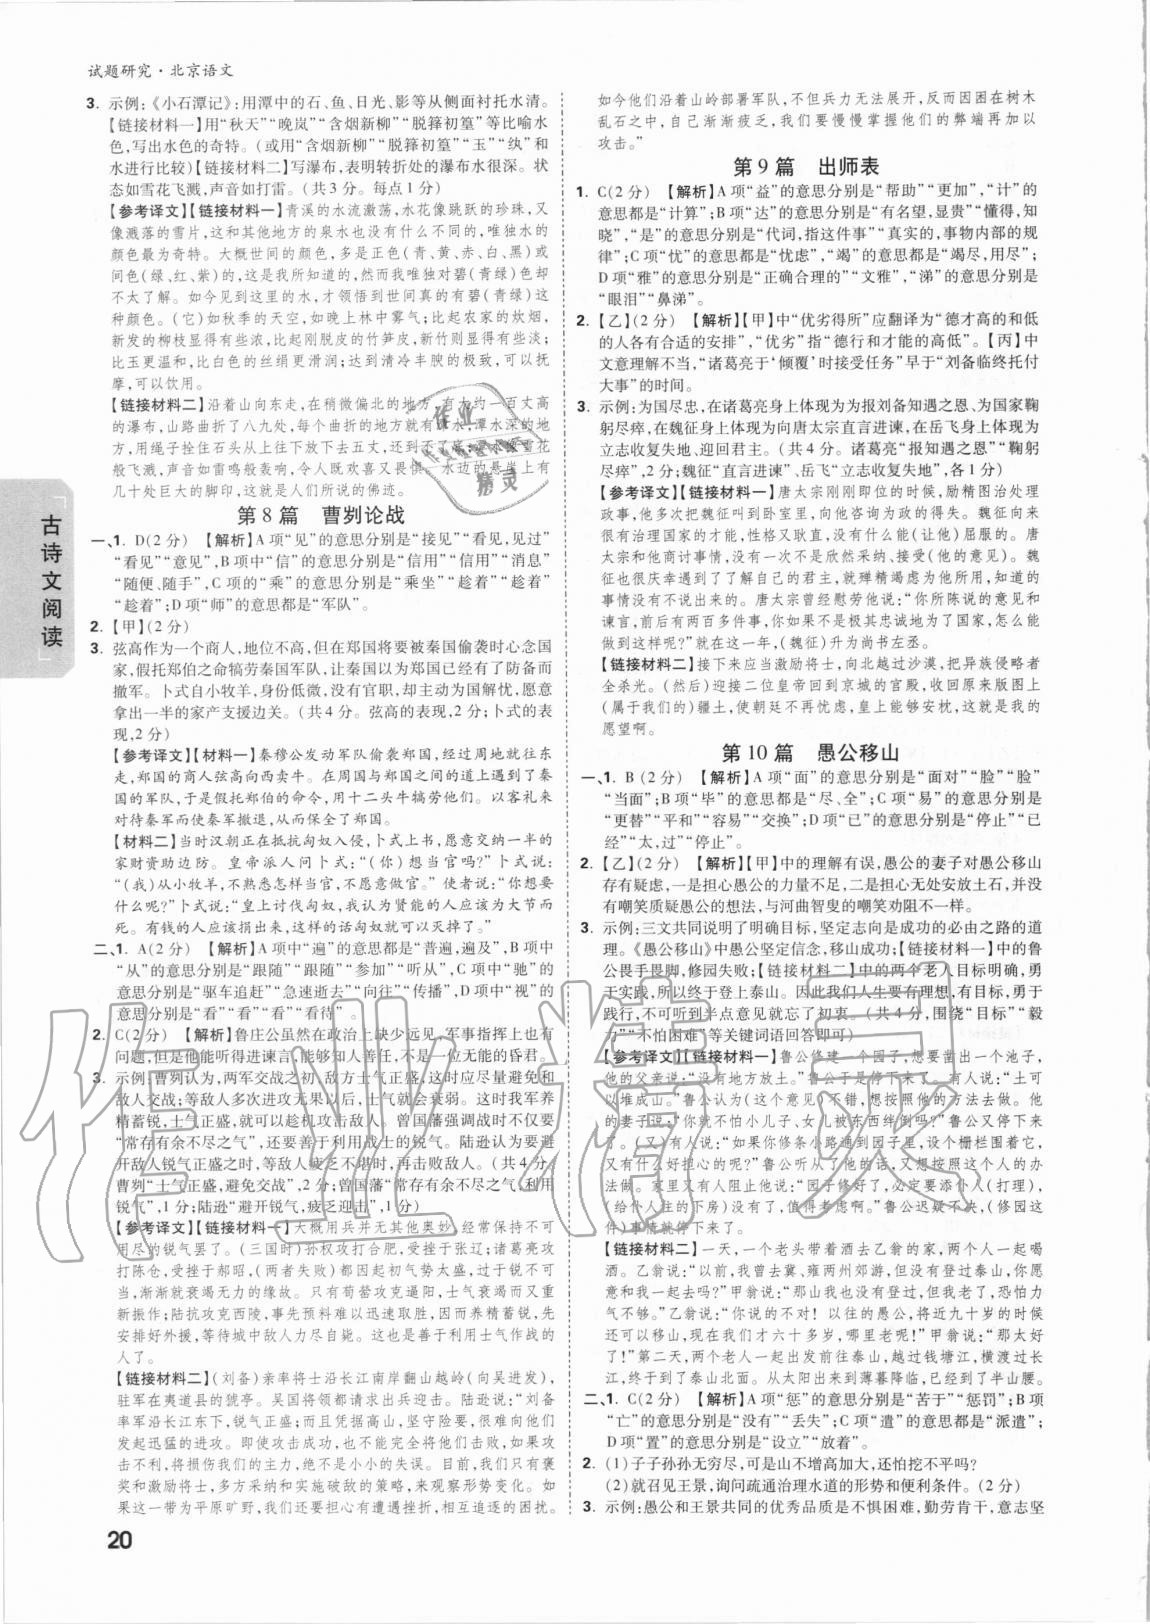 试题研究·北京语文
3. 示例:《小石潭记》:用潭中的石、鱼、日光、影等从侧面衬托水清。
【链接材料一】用“秋天”“晚岚”“含烟新柳”“脱箨初篁”等比喻水
色,写出水色的奇特。(或用“含烟新柳”“脱箨初篁”“玉”“纨”和
水进行比较)【链接材料二】写瀑布,表明转折处的瀑布水很深。
状态如雪花飞溅,声音如打雷。(共3分。每点1分)
【参考译文】【链接材料一】青溪的水流激荡,水花像跳跃的珍珠,又
像溅落的雪片,这和其他地方的泉水也没有什么不同的,唯独水的
颜色最为奇特。大概世间的颜色,多是正色(青、黄、赤、白、黑)或
间色(绿、红、紫)的,这是我所知道的,然而我唯独对碧(青绿)色却
不太了解。如今见到这里的水,才领悟到世间真的有碧(青绿)色
这种颜色。(它)如秋季的天空,如晚上林中雾气;比起农家的炊烟,
新发的柳枝显得有些浓,比起刚脱皮的竹笋皮,新竹则显得有些淡;
比玉更温和,比白色的丝绢更滑润;达到清冷丰腴的极致,可以抚
摩,可以饮用。
【链接材料二】沿着山向东走,在稍微偏北的地方,有大约一百丈高
的瀑布,山路曲折了八九处,每个大的转折的地方就有潭水,潭水深的地方,
用绳子拴住石头从上往下放下去五丈,还到不了底;
般飞溅,声音如雷鸣般轰响,令人既喜欢又畏惧。水边的悬崖上有
几十处巨大的脚印,这就是人们所说的佛迹。
第8篇 曹刿论战
一、1. D(2分) 【解析】A项“见”的意思分别是“接见”“看见,见过”
“看见”“意见”,B项中“信”的意思分别是“信用”“信用”“消息”
“随便、随手”,C项的“乘”的意思分别是“乘坐”“趁着”“趁着”
“趁着”;D项“师”的意思都是“军队”。
2. 【甲】(2分)
3. 弦高作为一个商人,地位不高,但在郑国将被秦国偷袭时心念国
家,假托郑伯之命犒劳秦国军队,让秦国以为郑国已经有了防备而
撤军。卜式自小牧羊,身份低微,没有官职,却主动为国解忧,愿意
拿出一半的家产支援边关。(共4分。弦高的表现,2分;卜式的表
现,2分)
【参考译文】【材料一】秦穆公发动军队偷袭郑国,经过周地就往东
走,郑国的商人弦高向西卖牛。在周国与郑国之间的道路,遇到了秦
国的军队,于是假托郑伯的命令,用十二头牛犒劳他们。以客礼来
对待秦军而使秦军撤退,从而保全了郑国。
【材料二】当时汉朝正在抵抗匈奴入侵,卜式上书,愿意交纳一半的
家财资助边防。皇帝派人问卜式:“(你)想当官吗?”卜式说:
“(我)从小牧羊,不熟悉怎样当官,不愿意做官。”使者说:“你想要
什么呢?”卜式说:“皇上讨伐匈奴,我认为贤能的人应该为大节而
死。有钱的人应该捐出来,这样的话匈奴就可以灭掉了。”
二、1. A(2分) 【解析】A项中“遍”的意思都是“普遍,遍及”,B项中
“从”的意思分别是“跟随”“跟随”“参加”“听从”,C项中“驰”的
意思分别是“驱车追赶”“急速逝去”“向往”“传播”,D项中“视”的
意思分别是“看”“看”“看”“看待”。
2. C(2分) 【解析】鲁庄公虽然在政治上缺少远见,军事指挥上也有
问题,但是他能听得进谏言,能够知人善任,不是一位无能的昏君。
3. 示例:曹刿认为,两军交战之初,敌方士气正盛,这时应尽量避免和
敌人交战;等敌人多次进攻无果以后,士气就会衰弱。这时我军养
精蓄锐,士气正盛,就可以趁机攻击敌人。曾国藩强调战时不仅要
“常存有余不尽之气”,还要善于利用战士的锐气。陆逊认为要避
开敌人锐气正盛时,等敌人疲乏不堪时,再攻击敌人。(共4分。
曹刿“士气正盛,避免交战”,2分;曾国藩“常存有余不尽之气,利用
锐气”,1分;陆逊“避开锐气,疲乏时迎击”,1分)
【参考译文】【链接材料一】大概用兵并无其他奥妙,经常保持不可
用尽的锐气罢了。(三国时)孙权攻打合肥,受挫于张辽;诸葛亮攻
打陈仓,受挫于郝昭,(两者失败)都是因为起初气势太盛,过于强求而
不当,渐渐就衰竭无力的缘故。只有荀罃攻克逼阳,士气衰竭而又
重新振作;陆抗攻克西陵,事先预料难以迅速攻下,因而养精蓄锐,先
安排好外援,等待城中敌人力尽自毙。这也是善于利用士气作战的
人了。
【链接材料二】(刘备)亲率将士沿长江南岸翻山越岭(向吴进发),
驻军在夷道县的猇亭。吴国将领都请求出兵迎击。陆逊说:“刘备
率军沿长江东下,锐气正盛;而且凭据高山,坚守险要,很难向他们
发起迅猛的进攻。即使攻击成功,也不能完全将他们击败,如果攻击
不利,将损伤我们的主力,绝不是小小的失误。目前,我们只有褒
奖和激励将士,多方采纳和实施破敌的策略,来观察形势变化。如
果这一带为平原旷野,我们还要担心有遭遇挫折,相互追逐的忧扰。
如今他们沿着山岭部署军队,不但兵力无法展开,反而因困在树木
乱石之中,自己渐渐疲乏,我们要慢慢掌握他们的弊端再加以
攻击。”
第9篇 出师表
1. C(2分) 【解析】A项“益”的意思分别是“帮助”“更加”,“计”的
意思都是“计算”;B项“达”的意思分别是“有名望,显贵”“懂得,知
晓”,“是”的意思分别是“代词,指这件事”“真实的,事物内部的规
律”;C项“忧”的意思都是“忧虑”,“竭”的意思都是“竭尽,用尽”;
D项“雅”的意思分别是“正确合理的”“文雅”,“涕”的意思分别是
“眼泪”“鼻涕”。
2. 【乙】(2分) 【解析】【甲】中“优劣得所”应翻译为“德才高的和低
的人各有合适的安排”,“优劣”指“德行和才能的高低”。【丙】中
文意理解不当,“诸葛亮于‘倾覆’时接受任务”早于“刘备临终托付
大事”的时间。
3. 示例:为国尽忠,在诸葛亮身上体现为为报刘备知遇之恩、为国家鞠
躬尽瘁,在魏征身上体现为向唐太宗直言进谏,在岳飞身上体现为
立志收复失地、迎回君主。(共4分。诸葛亮“报知遇之恩”“鞠躬
尽瘁”,2分;魏征“直言进谏”、岳飞“立志收复失地”,各1分)
【参考译文】【链接材料一】唐太宗刚刚即位的时候,励精图治处理
政事,他多次把魏征叫到卧室里,向他咨询为政的得失。魏征本来就
很有治理国家的才能,性格又耿直,没有什么能(让他)屈服的。唐
太宗和他商讨事情,没有一次不是欣然采纳、接受(他的意见)。魏
征也很庆幸遇到了了解自己的君主,就殚精竭虑为他所用,知道的
事情没有不说出来的。唐太宗曾经慰劳他说:“你所陈说的意见和
谏言,前后有二百多件,如果不是极其忠诚地为了国家,怎么能
做到这样呢?”就在这一年,(魏征)升为尚书左丞。
【链接材料二】接下来应当激励将士,向北越过沙漠,把异族侵略者
全杀光。(然后)迎接二位皇帝回到京城的宫殿,收回原来版图上
(属于我们的)疆土,使朝廷不再忧虑,皇上能够安枕,这就是我的
愿望啊。
第10篇 愚公移山
一、1. B(2分) 【解析】A项“面”的意思分别是“面对”“脸”“脸”
“当面”;B项“毕”的意思都是“尽、全”;C项“易”的意思分别是
“更替”“平和”“容易”“交换”;D项“已”的意思分别是“停止”“已
经”“太,过”“停止”。
2. 【乙】(2分) 【解析】【甲】中的理解有误,愚公的妻子对愚公移山
存有疑虑,一是担心愚公的力量不足,二是担心无处安放土石,并没
有嘲笑质疑愚公的想法,与河曲智叟的嘲笑劝阻不一样。
3. 示例:三文共同说明了明确目标,坚定志向是成功的必由之路的道
理。《愚公移山》中愚公坚定信念,移山成功;【链接材料一】中的鲁
公畏手畏脚,修园失败;【链接材料二】中的两个老人目标明确,勇
于实践,所以终于登上泰山。因此我们人生要有理想,有目标,勇于
践行,不可听到半点意见就前功尽弃。(共4分,围绕“目标”“毅
力”“不怕困难”等关键词语回答即可)
【参考译文】【链接材料一】鲁公修建一个园子,想要凿出一个池子,
他的父亲说:“没有地方放土。”鲁公于是停下来了。有人说:“土可
以堆成山。”鲁公认为(这个意见)可行,又想按他的方法去做。他
的妻子说:“你就不怕小儿子、女儿被东西绊倒吗?”鲁公又停下来
了。(又)有人说:“如果你修条小路通到园子里,设个栅栏围着它,
又有什么好担心的呢?”鲁公听从了他的意见,又想按照这个办法
去做。家里又有人阻止他说:“园子修好了,必定要添仆人(打理),
给仆人住的(下房)没有,值得考虑啊。”鲁公迟疑不决,(修园这
件)事情就停下来了。
【链接材料二】一天,一个老头带着酒去乙翁的家,两个人一起喝
酒。乙翁说:“以前,我曾去冀、雍两州郊游,但没有登过泰山,我想
与你一起去,可以吗?”甲翁说:“那泰山我也没有登过,但我老了,恐怕力
气不够。”乙翁说:“你说的不对!以往的愚公,将近九十岁的时候
还可以移山,现在我们才六十多岁,哪里老呢!”甲翁说:“那太好
了!”第二天,两个人就一起出发前往泰山,越过钱塘江,横渡过长
江,终于来到了泰山北面。从太阳出来到太阳落山,已经到了半山腰。
二、1. C(2分) 【解析】A项“惩”的意思分别是“苦于”“惩罚”;B项
“亡”的意思分别是“没有”“丢失”;C项“遣”的意思都是“派遣”;
D项“置”的意思分别是“设立”“放着”。
2. (1)子子孙孙无穷尽,可是山不增高加大,还怕挖不平吗?
(2)就召见王景,询问疏通治理水道的形势和便利条件。(2分)
3. 示例:愚公和王景共同的优秀品质是不惧困难,勤劳肯干,意志坚
古诗文阅读
20
作业精灵